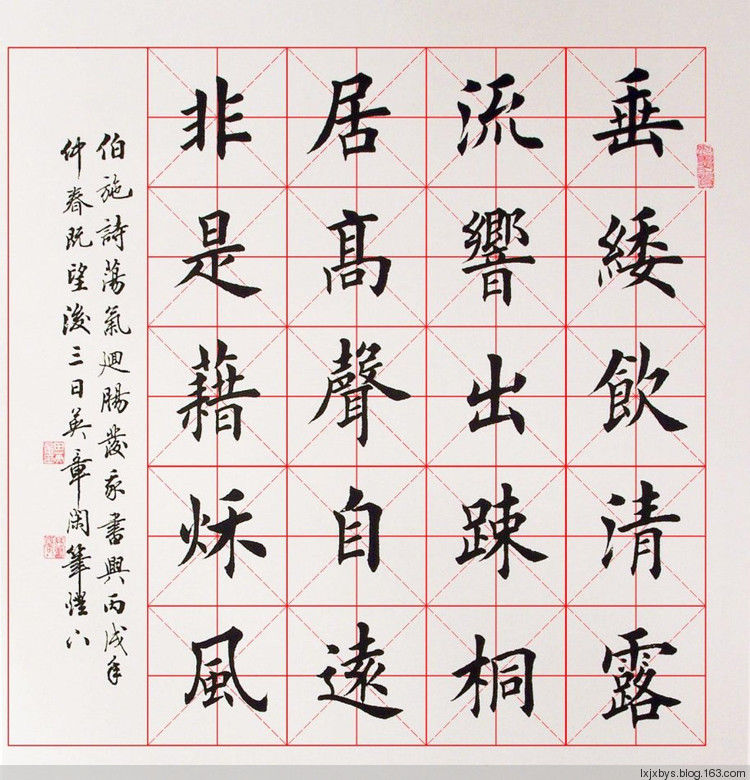 垂緌飲清露
流響出踈桐
居髙聲自遠
非是藉秌風
伯施詩蕩氣迴腸發我書興丙戌年
仲春既望後三日英章閑筆
lxjxbys.blog.163.com